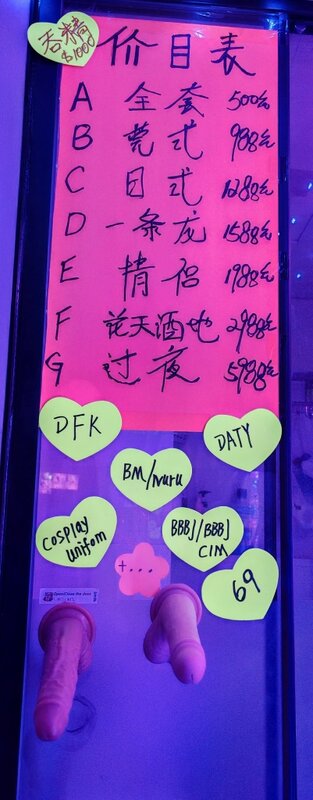 吞精
$1000
价目表
A 全套 500元
B 莞式 988元
C 日式 1288元
D 一条龙 1588元
E 情侣 1988元
F 花天酒地 2988元
G 过夜 5988元
DFK
DATY
BM/nuru
Cosplay
unifom
BBBJ/BBBJ
CIM
+...
69
Open/Close the door